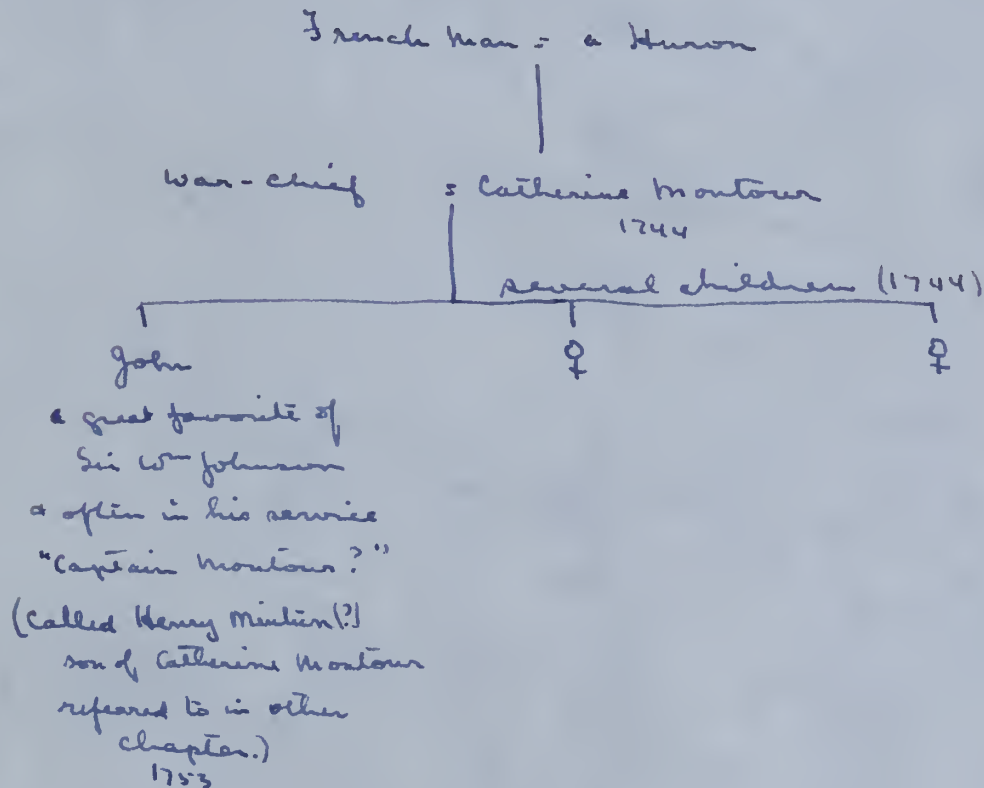 French man = a Huron
war-chief = Catherine Montour
1744
several children (1744)
John
♀ ♀
a great favorite of
Sir Wm Johnson
& often in his service
"Captain Montour?"
(called Henry (?)
son of Catherine Montour
refeared to in other
chapter.)
1753